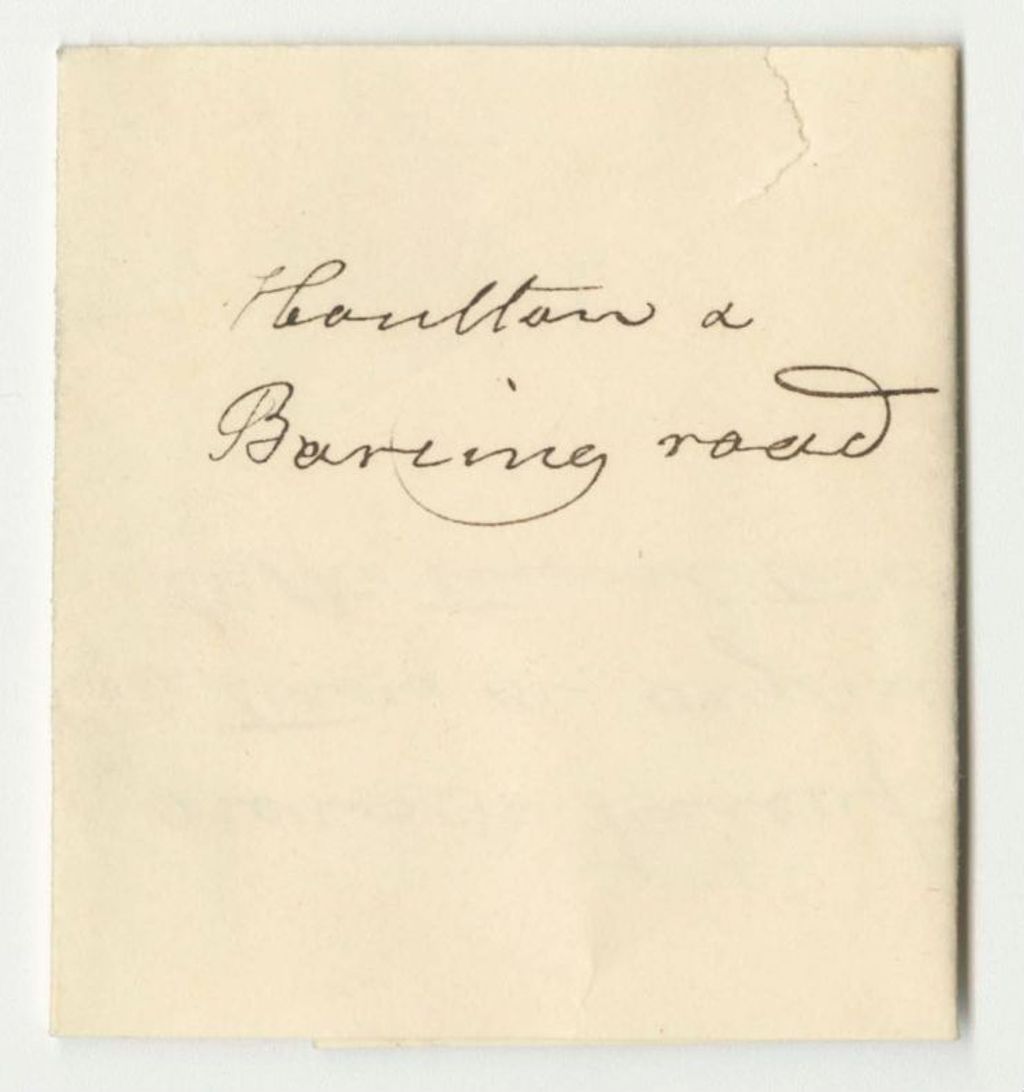 Houlton &
Baring road